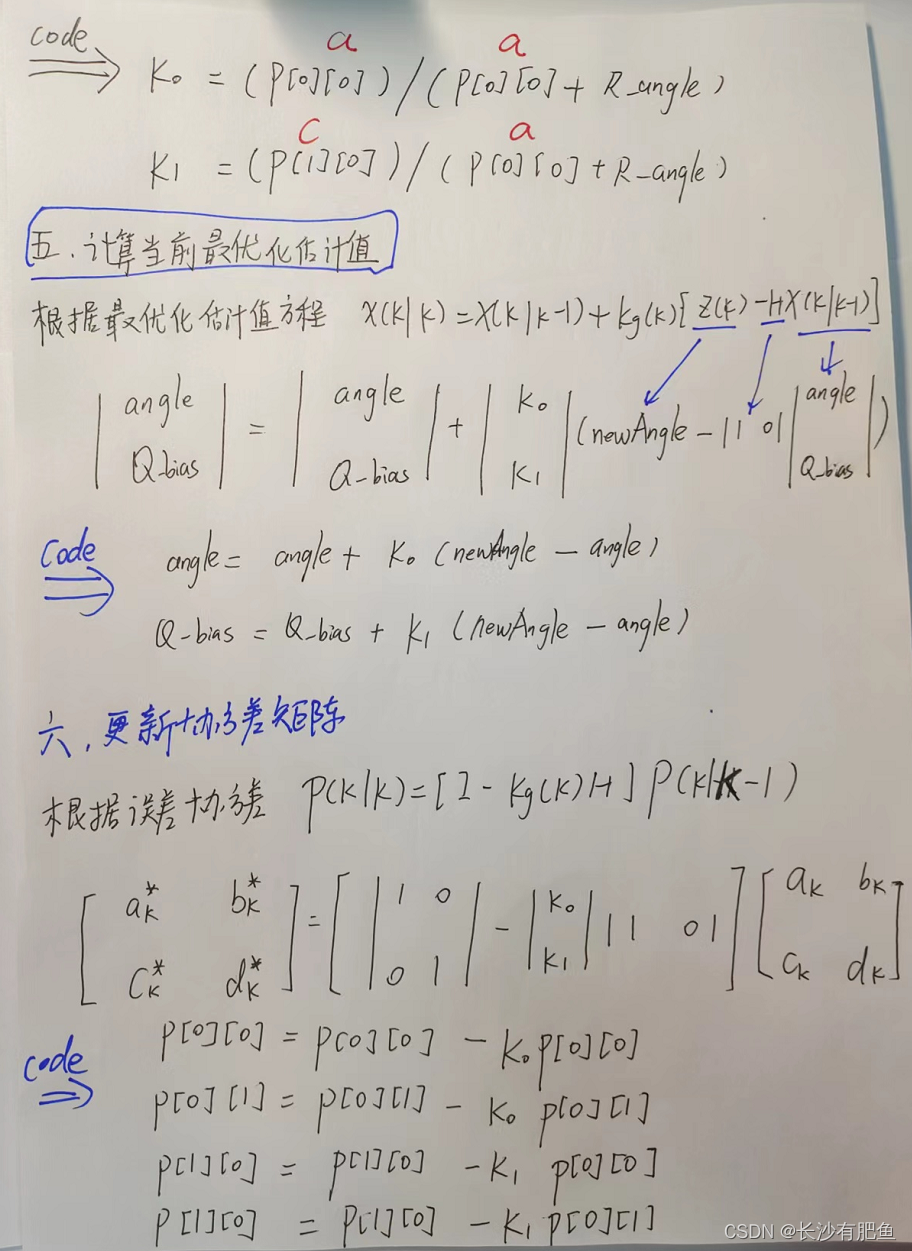 code
a a
⇒ K0 = (P[0][0]) / (P[0][0] + R_angle)
c a
K1 = (P[1][0]) / (P[0][0] + R_angle)
五.计算当前最优化估计值
根据最优化估计值方程 X(k|k) = X(k|k-1) + kg(k)[Z(k) - HX(k|k-1)]
|angle| = |angle| + |K0| (newAngle - |1 0| |angle|)
|Q_bias| |Q_bias| |K1| |Q_bias|
Code ⇒ angle = angle + K0 (newAngle - angle)
Q-bias = Q_bias + K1 (newAngle - angle)
六.更新协方差矩阵
根据误差协方差 P(k|k) = [I - Kg(k)H] P(k|k-1)
[ak* bk*] = [|1 0| - |K0| |1 0|] [ak bk]
[ck* dk*] |0 1| |K1| [ck dk]
code ⇒ P[0][0] = P[0][0] - K0 P[0][0]
P[0][1] = P[0][1] - K0 P[0][1]
P[1][0] = P[1][0] - K1 P[0][0]
P[1][0] = P[1][0] - K1 P[0][1]
CSDN @长沙有肥鱼